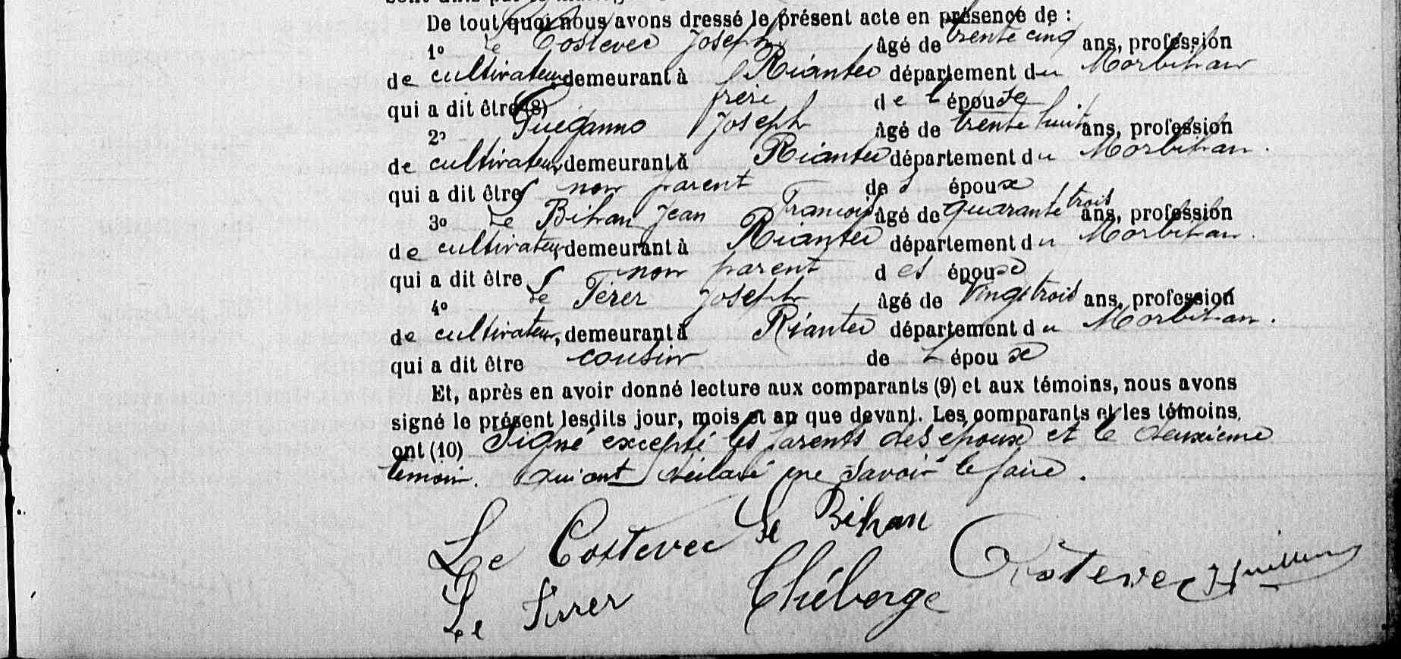 De tout quoi nous avons dressé le présent acte en présence de :
1o Le Costevec Joseph âgé de trente cinq ans, profession
de cultivateur, demeurant à Riantec département du Morbihan
qui a dit être (8) frère de l'épouse
2o Guéganno Joseph âgé de trente huit ans, profession
de cultivateur, demeurant à Riantec département du Morbihan.
qui a dit être non parent de l'époux
3o Le Bihan Jean François âgé de quarante trois ans, profession
de cultivateur, demeurant à Riantec département du Morbihan.
qui a dit être non parent des époux
4o Le Férer Joseph âgé de vingt trois ans, profession
de cultivateur, demeurant à Riantec département du Morbihan.
qui a dit être cousin de L'époux
Et, après en avoir donné lecture aux comparants (9) et aux témoins, nous avons
signé le présent lesdits jour, mois et an que devant. Les comparants et les témoins
ont (10) Signé excepté les parents des époux et le deuxième
témoin. qui ont déclaré ne savoir le faire.
Le Costevec Le Bihan
Le Firrer Théberge Costevec